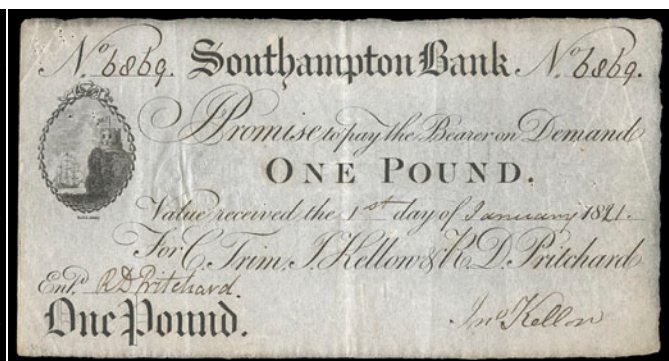 No. 6869. Southampton Bank No. 6869.
I Promise to pay the Bearer on Demand
ONE POUND.
Value received the 1st day of January 1821.
For C. Trim, J. Kellow & R. D. Pritchard
Entd. R D Pritchard.
One Pound. Jno Kellow